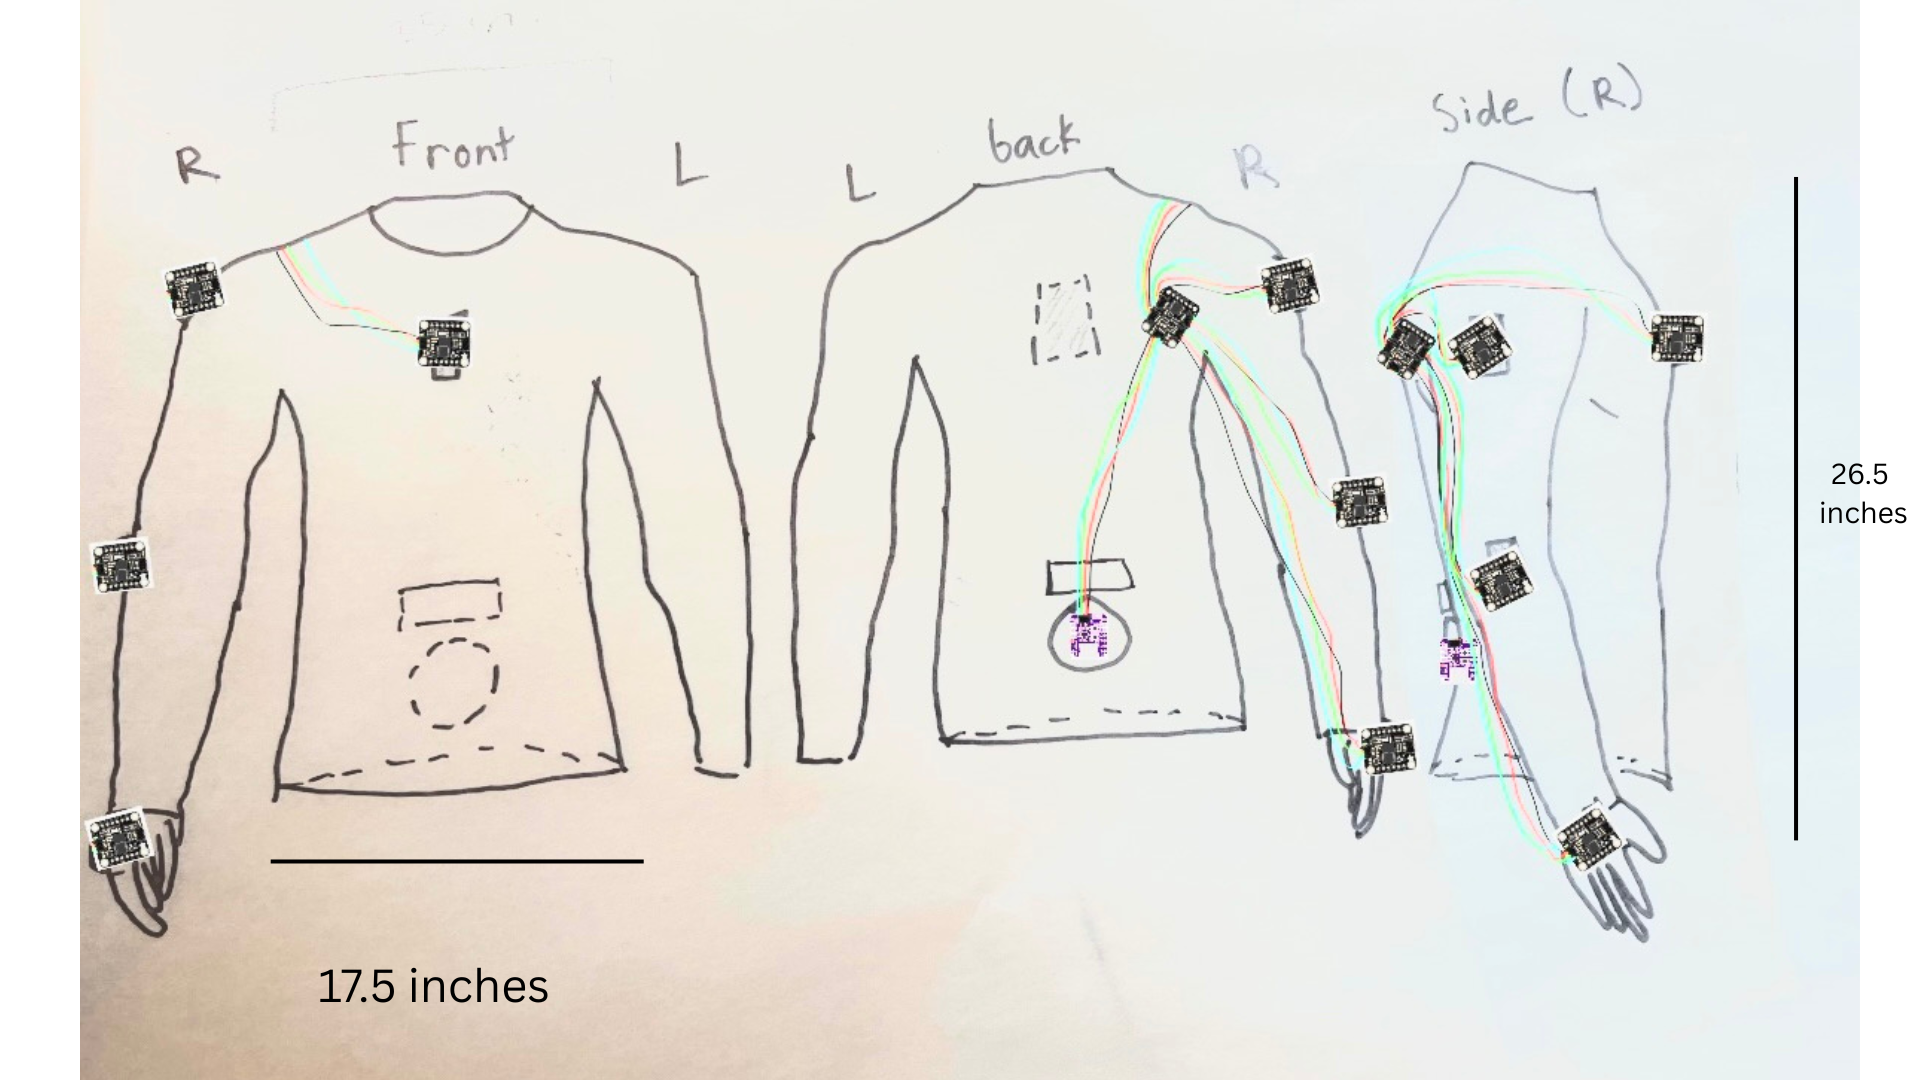 Front
R
L
back
L
R
Side (R)
26.5
inches
17.5 inches